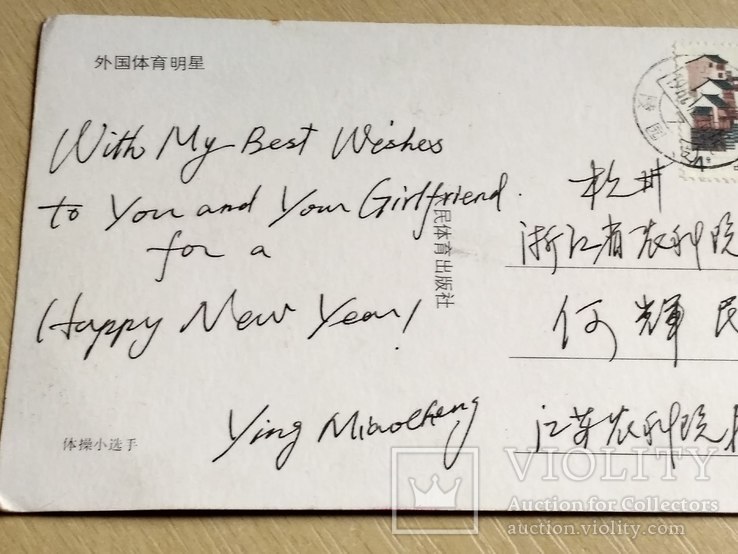 外国体育明星
With My Best Wishes
to You and Your Girlfriend.
for a
Happy New Year!
Ying Miaocheng
体操小选手
民体育出版社
浙江省农科院
何輝民
江苏农科院
VIOLITY
Auction for Collectors
auction.violity.com